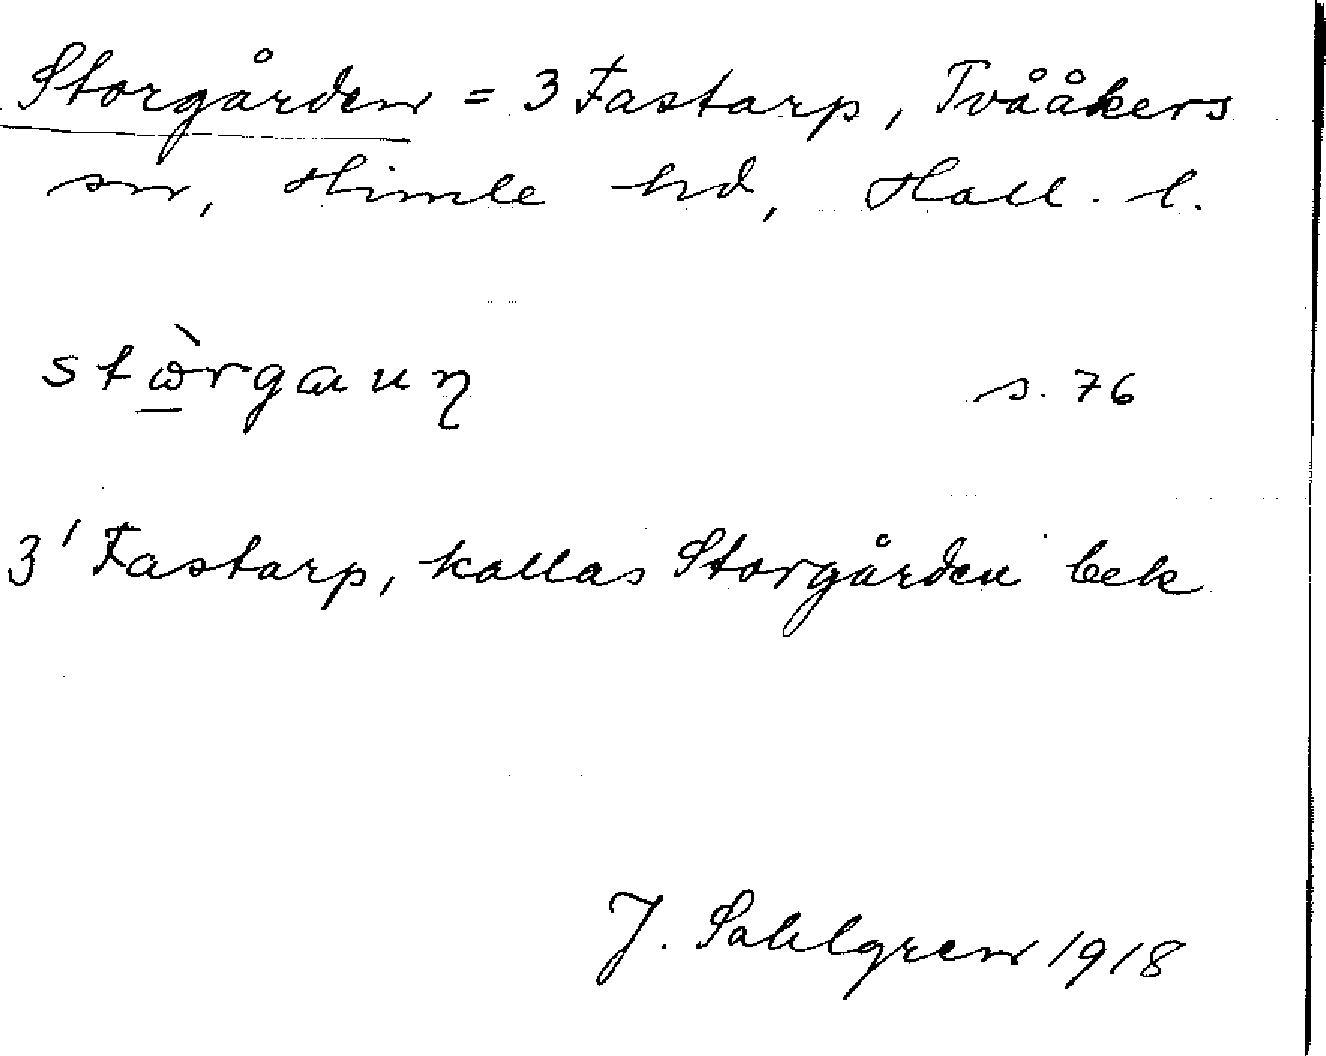 Storgården = 3 Fastarp, Tvååkers
sn, Himle hd, Hall. l.
stὼ̱rgɑuṇ s. 76
3' Fastarp, kallas Storgården bek
J. Sahlgren 1918